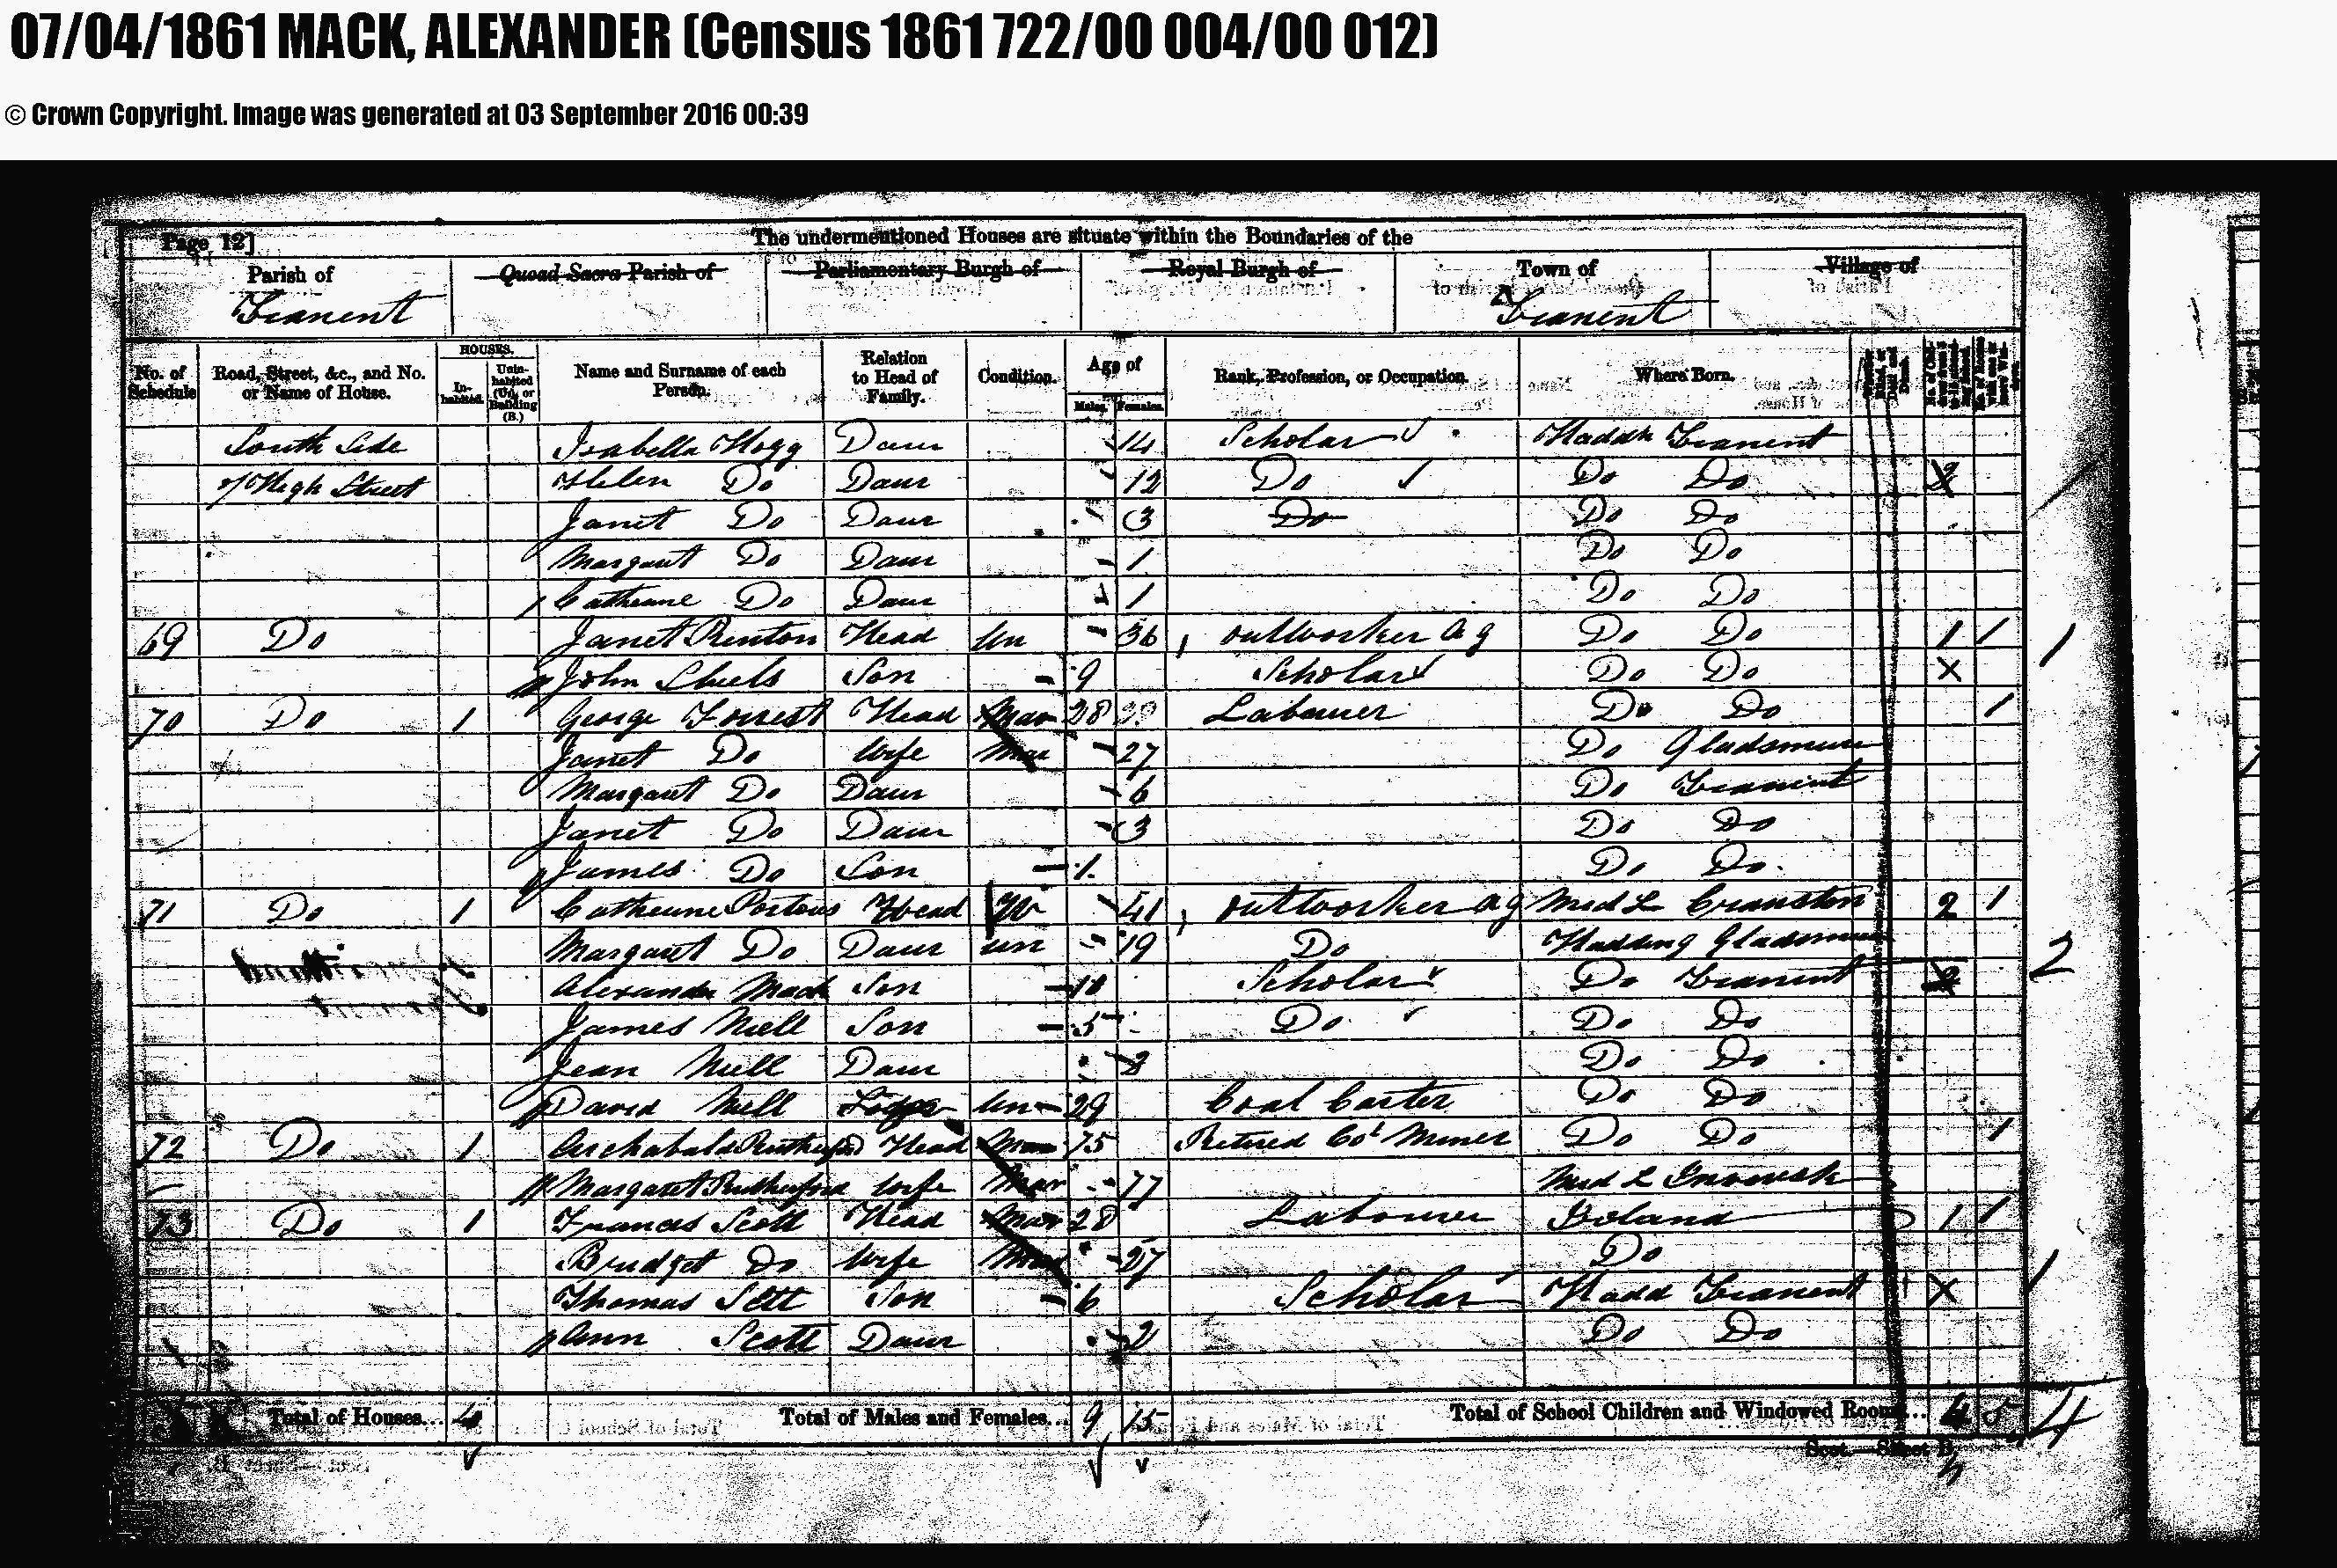 07/04/1861 MACK, ALEXANDER (Census 1861 722/00 004/00 012)
© Crown Copyright. Image was generated at 03 September 2016 00:39
Page 12] The undermentioned Houses are situate within the Boundaries of the
Parish of Quoad Sacra Parish of Parliamentary Burgh of Royal Burgh of Town of Village of
Tranent Tranent
No. of Schedule Road, Street, &c., and No. or Name of House. HOUSES. Inhabited. Uninhabited (U.), or Building (B.) Name and Surname of each Person. Relation to Head of Family. Condition. Age of Males. Females. Rank, Profession, or Occupation. Where Born.
South Side Isabella Hogg Daur 14 Scholar Haddn Tranent
of High Street Helen Do Daur 12 Do Do Do
Janet Do Daur 3 Do Do Do
Margaret Do Daur 1 Do Do
Catherine Do Daur 1 Do Do
69 Do Janet Renton Head Un 36 outworker ag Do Do 1 1 1
John Shiels Son 9 Scholar Do Do X
70 Do 1 George Forrest Head Mar 28 Labourer Do Do 1
Janet Do Wife Mar 27 Do Gladsmuir
Margaret Do Daur 6 Do Tranent
Janet Do Daur 3 Do Do
James Do Son 1 Do Do
71 Do 1 Catherine Porteus Head 41 outworker ag Mid L Cranston 2 1
Margaret Do Daur un 19 Do Hadding Gladsmuir 2
Alexander Mack Son Scholar Do Tranent
James Niell Son 5 Do Do Do
Jean Niell Daur 2 Do Do
David Niell Lodger Un 29 Coal Carter Do Do
72 Do 1 Archabald Rutherford Head Mar 75 Retired Col Miner Do Do 1
Margaret Rutherford Wife Mar 77 Mid L Inveresk
73 Do 1 Francis Scott Head Mar 28 Labourer Ireland 1 1
Bridget Do Wife Mar 27 Do
Thomas Scott Son 6 Scholar Hadd Tranent X 1
Ann Scott Daur 2 Do Do
Total of Houses... 4 Total of Males and Females... 9 15 Total of School Children and Windowed Rooms... 4 5 4
Scot.—Sheet B.